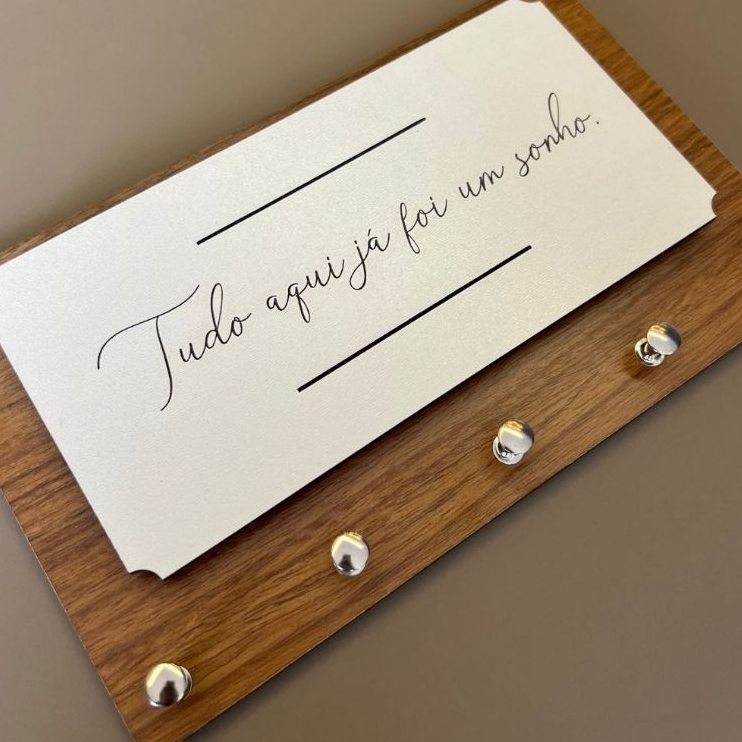 Tudo aqui já foi um sonho.